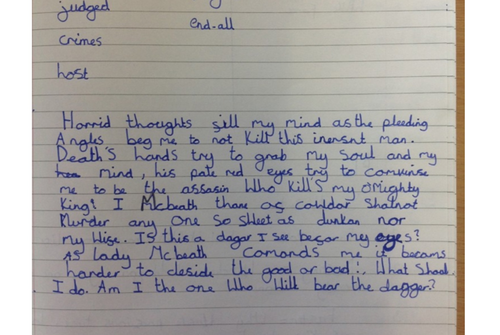 judged
end-all
crimes
host
Horrid thoughts fill my mind as the pleeding
Angles beg me to not Kill this inersnt man.
Death's hands try to grab my soul and my
mind, his pale red eyes try to convinse
me to be the assasin Who Kill's my almighty
King! I Mcbeath thane of cowldar Shallnot
Murder any one So sweet as dunkan nor
my Wife. Is this a dagar I see befor my eyes?
As lady Mcbeath Comands me it becoms
harder to deside the good or bad!. What Shall
I do. Am I the one Who Will bear the dagger?